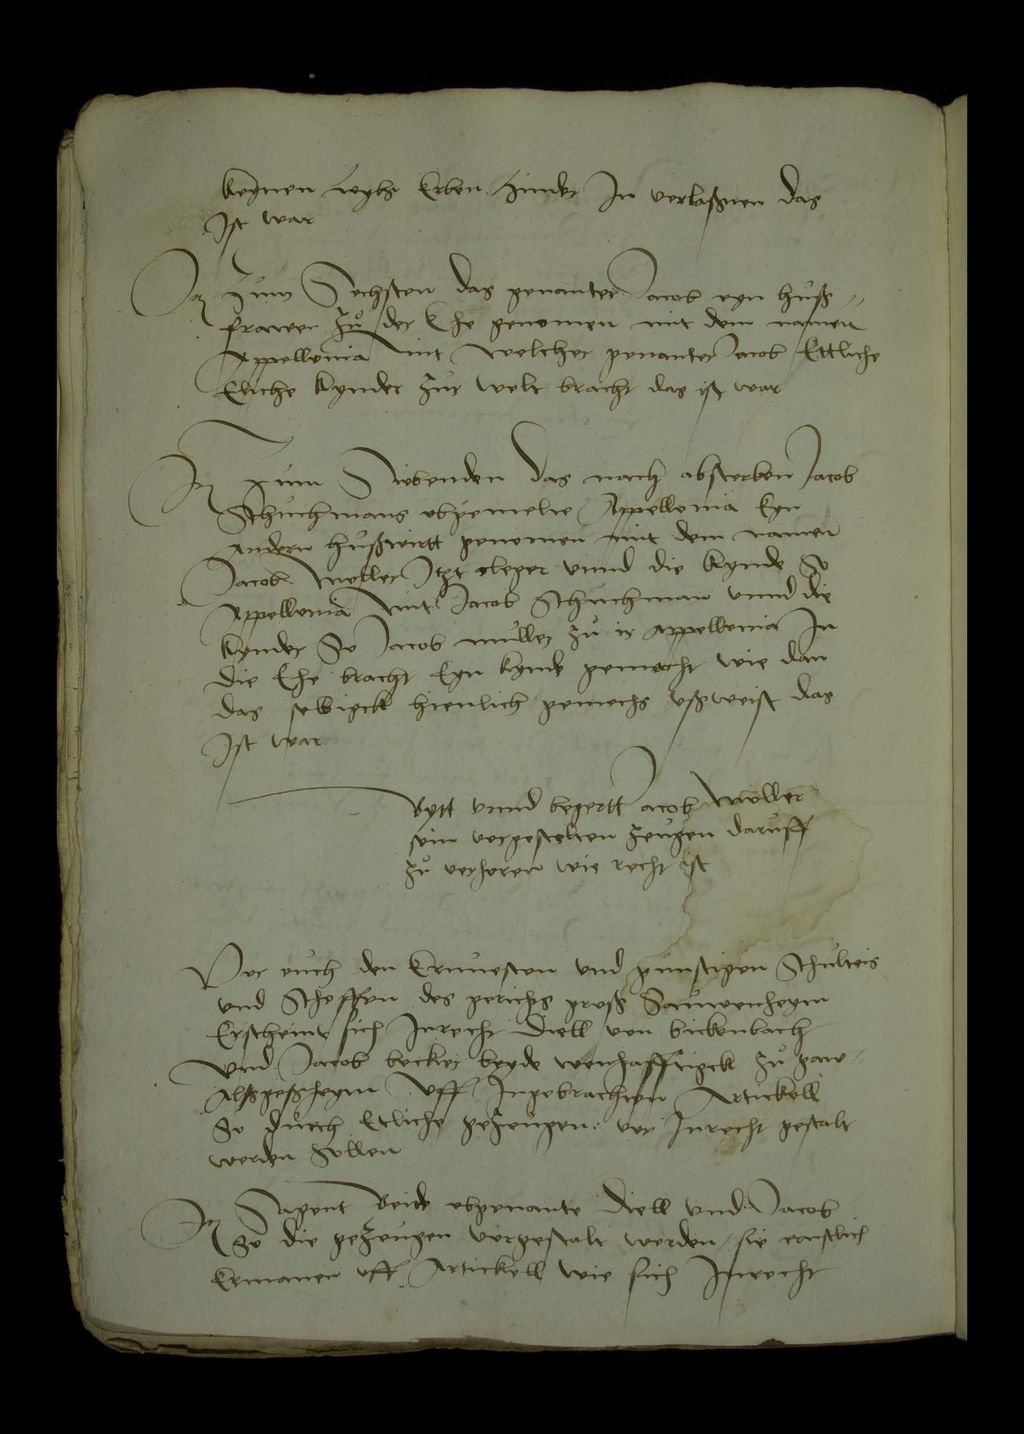 keynen leybs Erben hinder In verlaßenn das
Ist war
It Zum Sechsten das genanter Jacob eyn hůß
frawen zů der Ehe genomen mit dem namen
Appellonia mit welcher genanter Jacob Ettliche
Eliche kynder zůr welt bracht das ist war
It Zum Siebenden das nach absterben Jacob
Schuchmans obgemelte Appellonia Eyn
andern hůßwirtt genomen mit dem namen
Jacob Moller Itzt cleger vnnd die kynde So
Appellonia mit Jacob Schuchman vnnd die
kynder So Jacob můller zů ir appellonia In
die Ehe bracht Eyn kynde gemacht wie dan
das selbigk hienlich gemechs vßweist das
Ist war
Bytt vnnd begertt Jacob Moller
sein vorgestelten zeůgen daruff
zů verhoren wie recht ist
Vor euch den Ernuesten vnd gunstigen Schůlteis
vnd Scheffen des gerichs groß Sauwenheym
Erscheint sich Inrecht Diell von bickenbach
vnd Jacob becker beyde wonhafftigck zů gaw
alßgeßheym vff Ingebrachten Artickell
So durch Etliche gezeůgen vor Inrecht gestalt
werden sollen
It Sagent beide obgenante Diell vnd Jacob
So die gezeugen vorgestalt werden sie ernstlich
Ermanen vff Artickell wie sich Inrecht